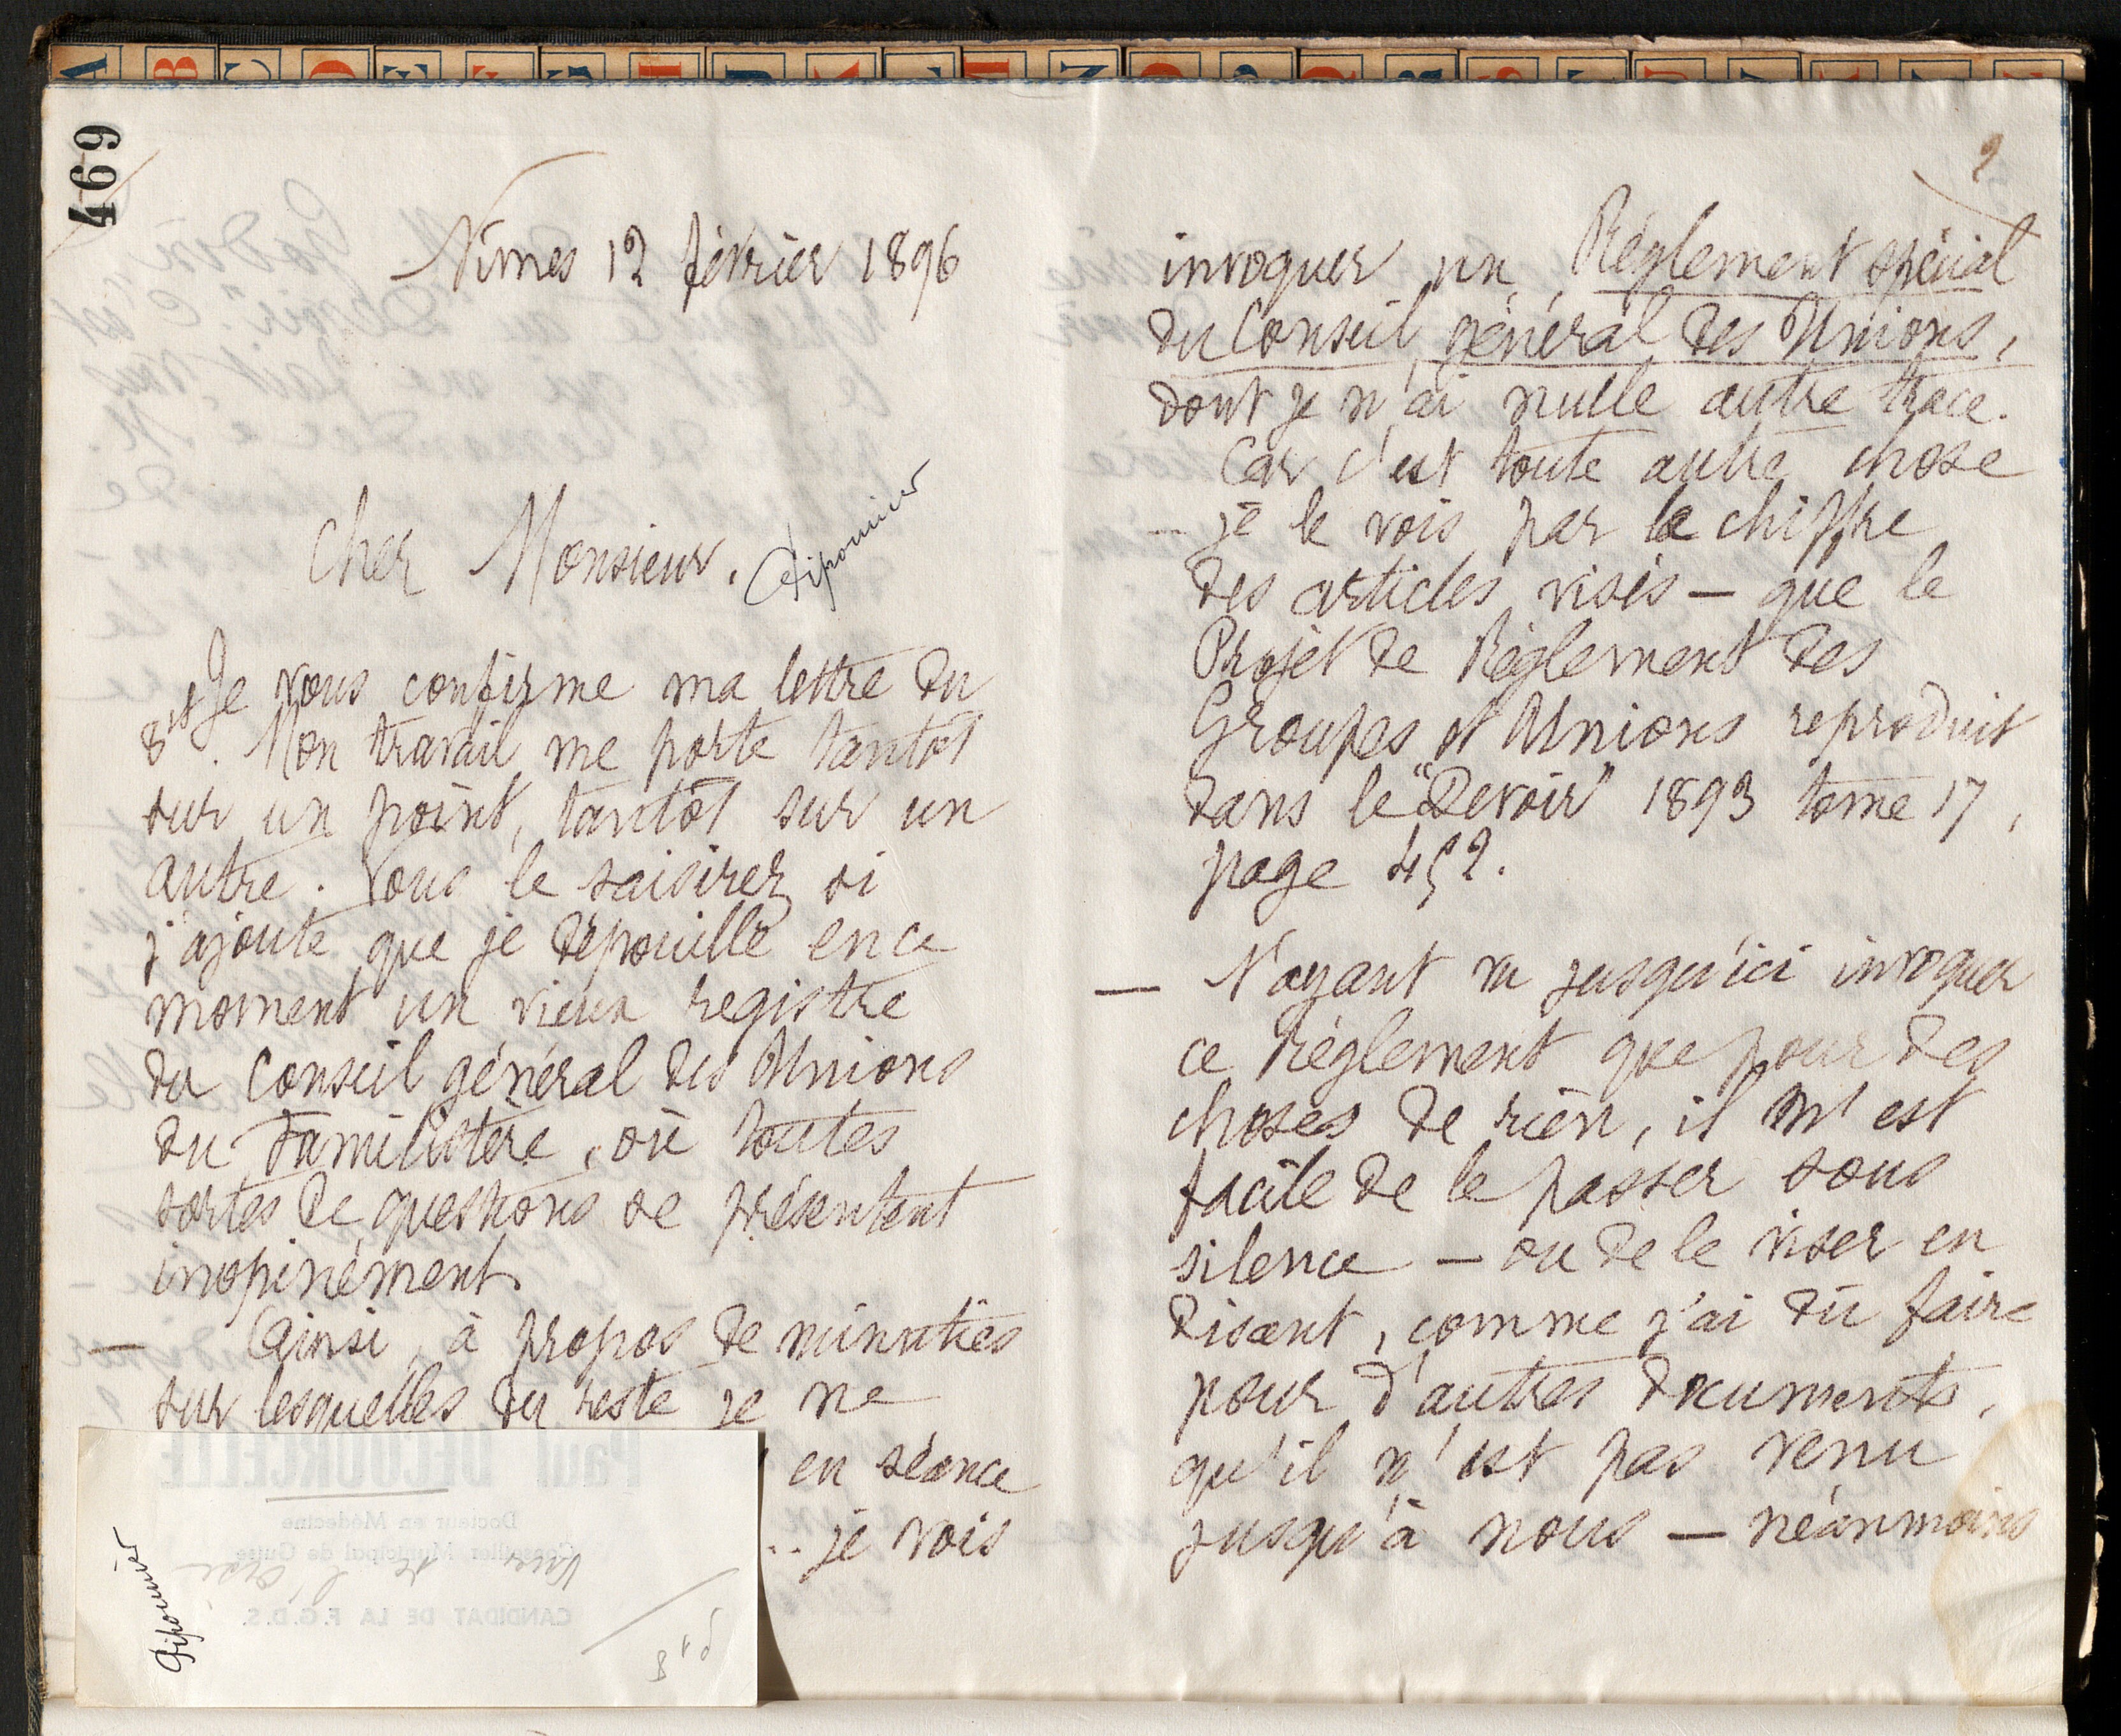 469
Nîmes 12 février 1896
Cher Monsieur. Sipounier
Je vous confirme ma lettre du
8 ct. Mon travail me porte tantôt
sur un point, tantôt sur un
autre. Vous le saisirez si
j'ajoute que je dépouille en ce
moment un vieux registre
du Conseil général des Unions
du Familistère, où toutes
sortes de questions se présentent
inopinément.
— Ainsi, à propos de minuties
sur lesquelles du reste je ne
en séance
.. je vois
Paul DECOURCELLE
Docteur en Médecine
Conseiller Municipal de Guise
CANDIDAT DE LA F.G.D.S.
Sipounier
2
invoquer un Règlement spécial
du Conseil général des Unions,
dont je n'ai nulle autre trace.
Car c'est toute autre chose
— je le vois par le chiffre
des articles visés — que le
Projet de Règlement des
Groupes et Unions reproduit
dans le "Devoir" 1893 tome 17,
page 452.
— N'ayant vu jusqu'ici invoquer
ce Règlement que pour des
choses de rien, il m'est
facile de le passer sous
silence — ou de le viser en
disant, comme j'ai dû faire
pour d'autres documents,
qu'il n'est pas venu
jusqu'à nous — néanmoins